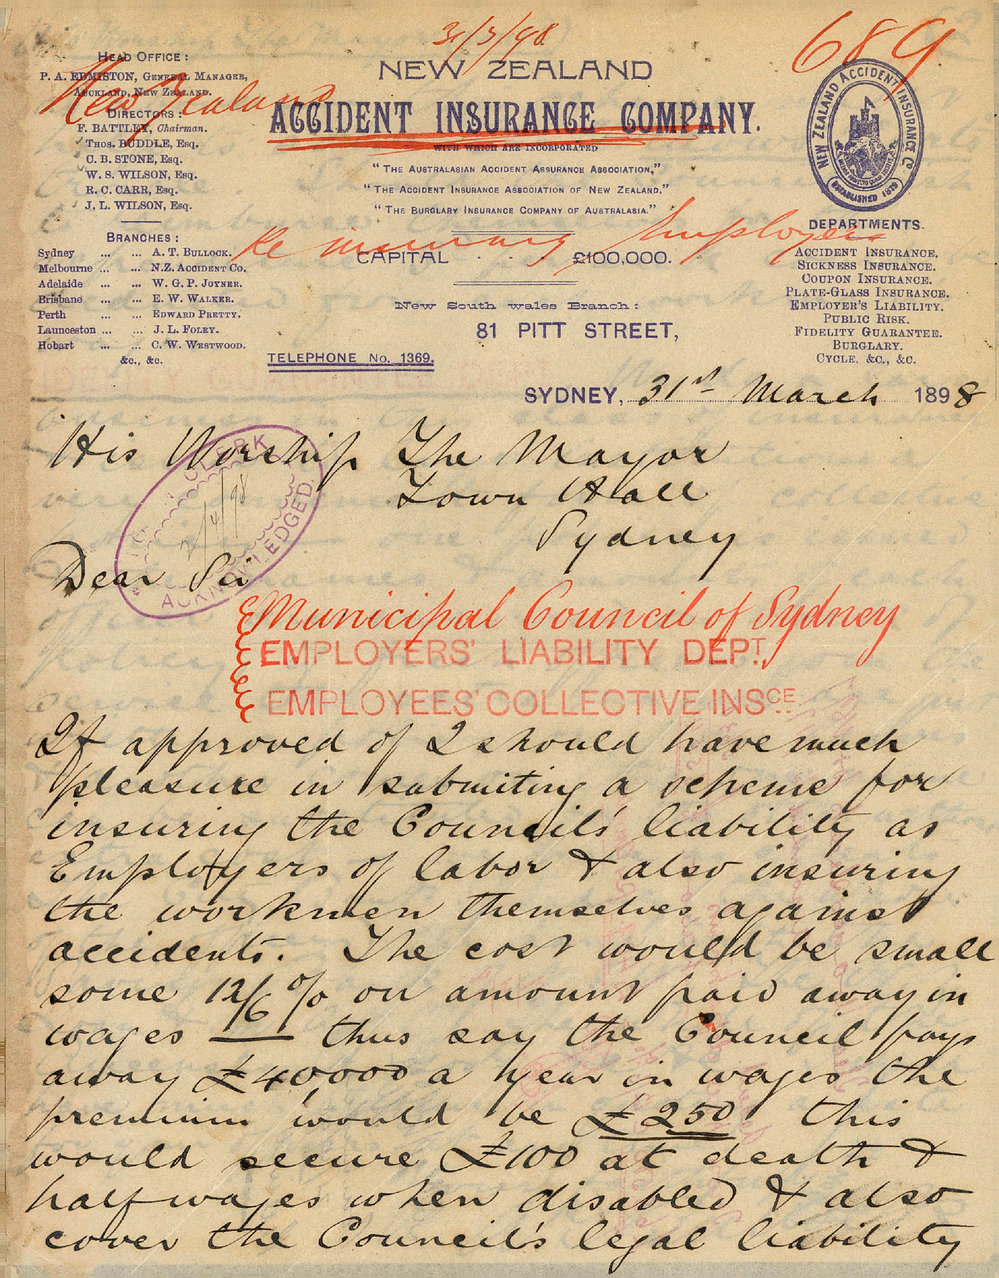 31/3/98
689
HEAD OFFICE:
P. A. EDMISTON, GENERAL MANAGER,
AUCKLAND, NEW ZEALAND.
New Zealand
DIRECTORS:
F. BATTLEY, Chairman.
THOS. BUDDLE, ESQ.
C. B. STONE, ESQ.
W. S. WILSON, ESQ.
R. C. CARR, ESQ.
J. L. WILSON, ESQ.
BRANCHES:
Sydney ... ... A. T. BULLOCK.
Melbourne ... ... N.Z. ACCIDENT CO.
Adelaide ... ... W. G. P. JOYNER.
Brisbane ... ... E. W. WALKER.
Perth ... ... EDWARD PRETTY.
Launceston ... ... J. L. FOLEY.
Hobart ... ... C. W. WESTWOOD.
&c., &c.
NEW ZEALAND
ACCIDENT INSURANCE COMPANY.
WITH WHICH ARE INCORPORATED
"THE AUSTRALASIAN ACCIDENT ASSURANCE ASSOCIATION,"
"THE ACCIDENT INSURANCE ASSOCIATION OF NEW ZEALAND."
"THE BURGLARY INSURANCE COMPANY OF AUSTRALASIA."
Re insuring Employees
CAPITAL · · £100,000.
New South Wales Branch:
81 PITT STREET,
TELEPHONE No. 1369.
NEW ZEALAND ACCIDENT INSURANCE CO
ESTABLISHED 1879
DEPARTMENTS
ACCIDENT INSURANCE.
SICKNESS INSURANCE.
COUPON INSURANCE.
PLATE-GLASS INSURANCE.
EMPLOYER'S LIABILITY.
PUBLIC RISK.
FIDELITY GUARANTEE.
BURGLARY.
CYCLE, &C., &C.
SYDNEY, 31st March 1898
His Worship The Mayor
Town Hall
Sydney
CLERK
2/4/98
ACKNOWLEDGED.
Dear Sir
Municipal Council of Sydney
EMPLOYERS' LIABILITY DEPT.
EMPLOYEES' COLLECTIVE INSCE.
If approved of I should have much
pleasure in submiting a scheme for
insuring the Council's liability as
Employers of labor & also insuring
the workmen themselves against
accidents. The cost would be small
some 12/6 % on amount paid away in
wages — thus say the Council pays
away £40000 a year in wages the
premium would be £250 this
would secure £100 at death &
half wages when disabled & also
cover the Council's legal liability